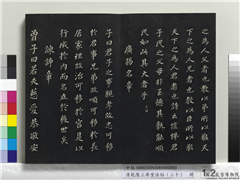 之為人父者也教以弟所以敬天
下之為人兄者也教以臣所以敬
天下之為人君者也詩云愷悌君
子民之父母非至德其孰能順
民如此其大者乎
廣揚名章
子曰君子之事親孝故忠可移
於君事兄弟故順可移於長
居家理故治可移於官是以
行成於內而名立於後世矣
諫諍章
曾子曰若夫慈愛恭敬安
清乾隆三希堂法帖(三十) 冊